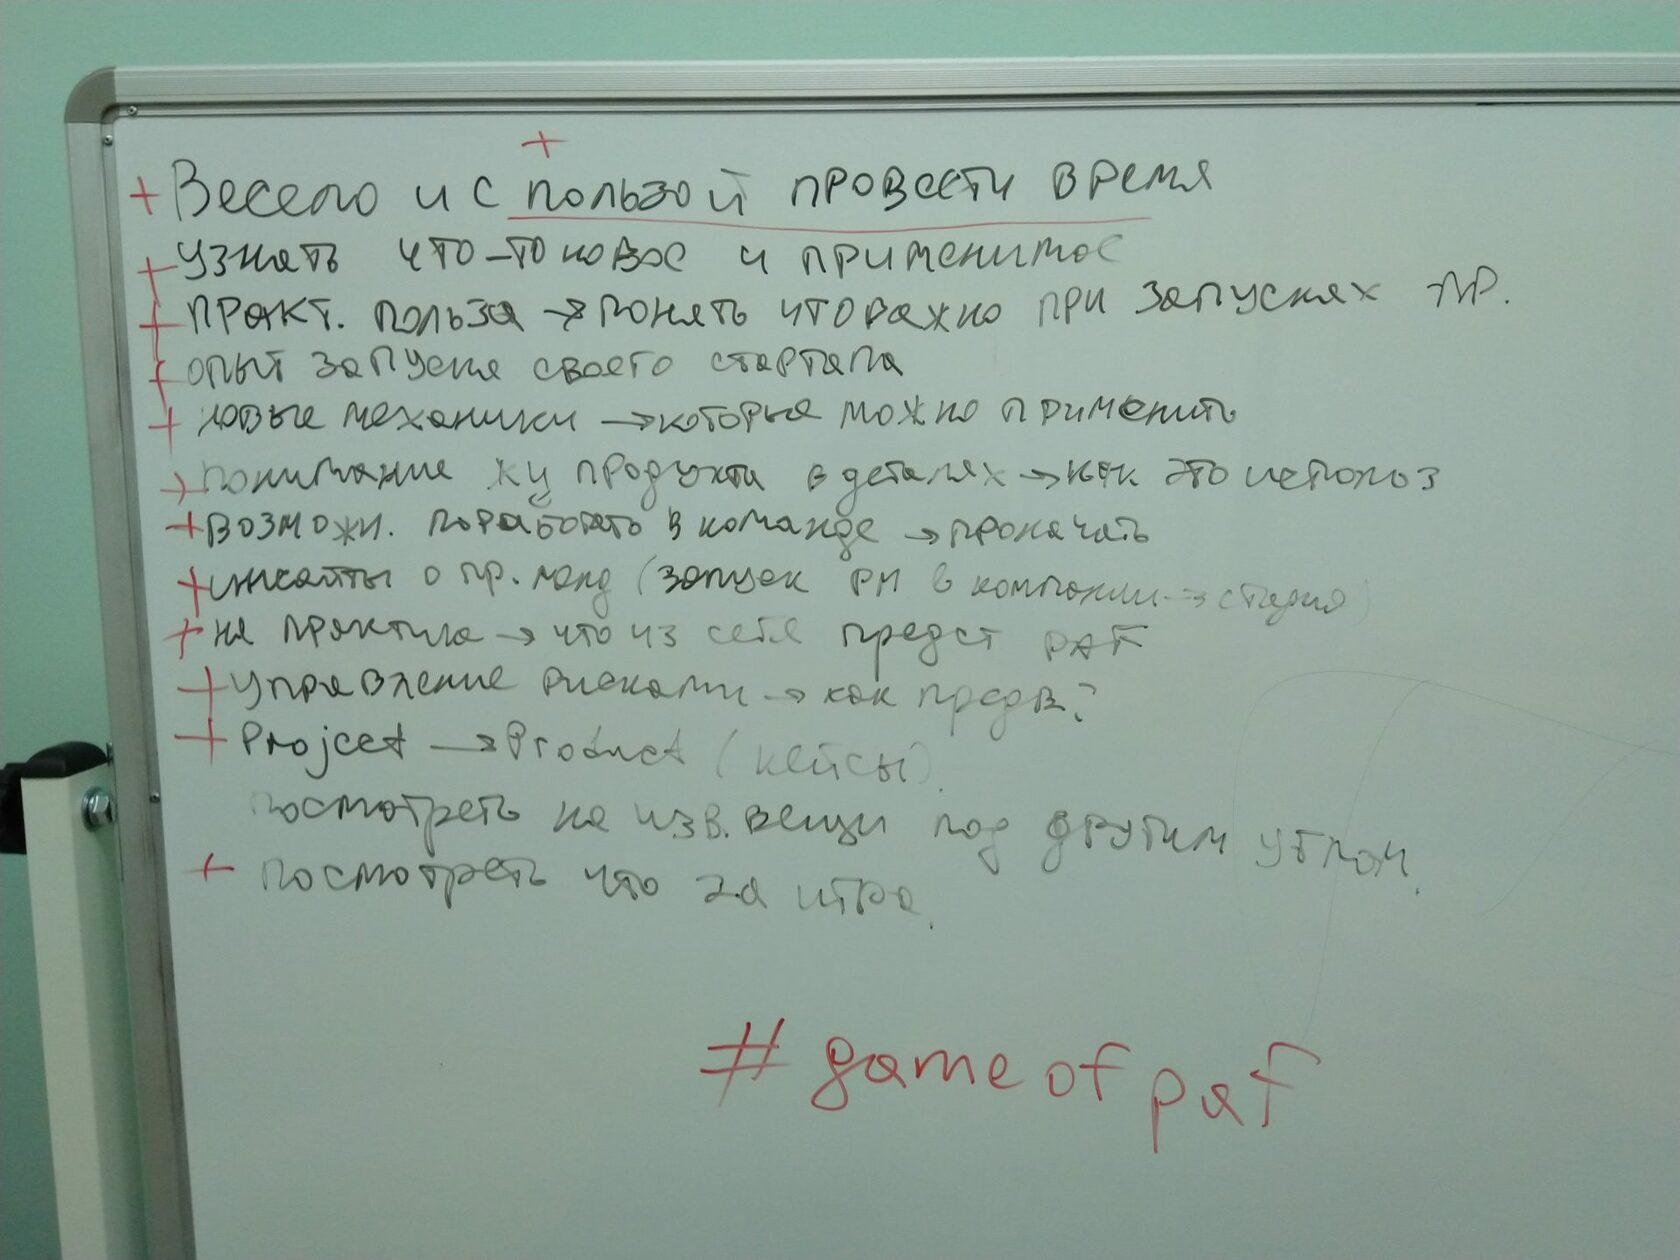 +
+ Весело и с пользой провести время
+ узнать что-то новое и применимое
+ практ. польза → понять что важно при запусках пр.
+ опыт запуска своего стартапа
+ новые механики → которые можно применить
+ понимание жц продукта в деталях → как это использ
+ возможн. поработать в команде → прокачать
+ инсайты о пр. менд (запуск PM в компании → стадия)
+ на практике → что из себя предст PAF
+ управление рисками → как предв?
+ Project → Product (кейсы).
посмотреть на изв. вещи под другим углом.
+ посмотреть что за игра.
# game of paf